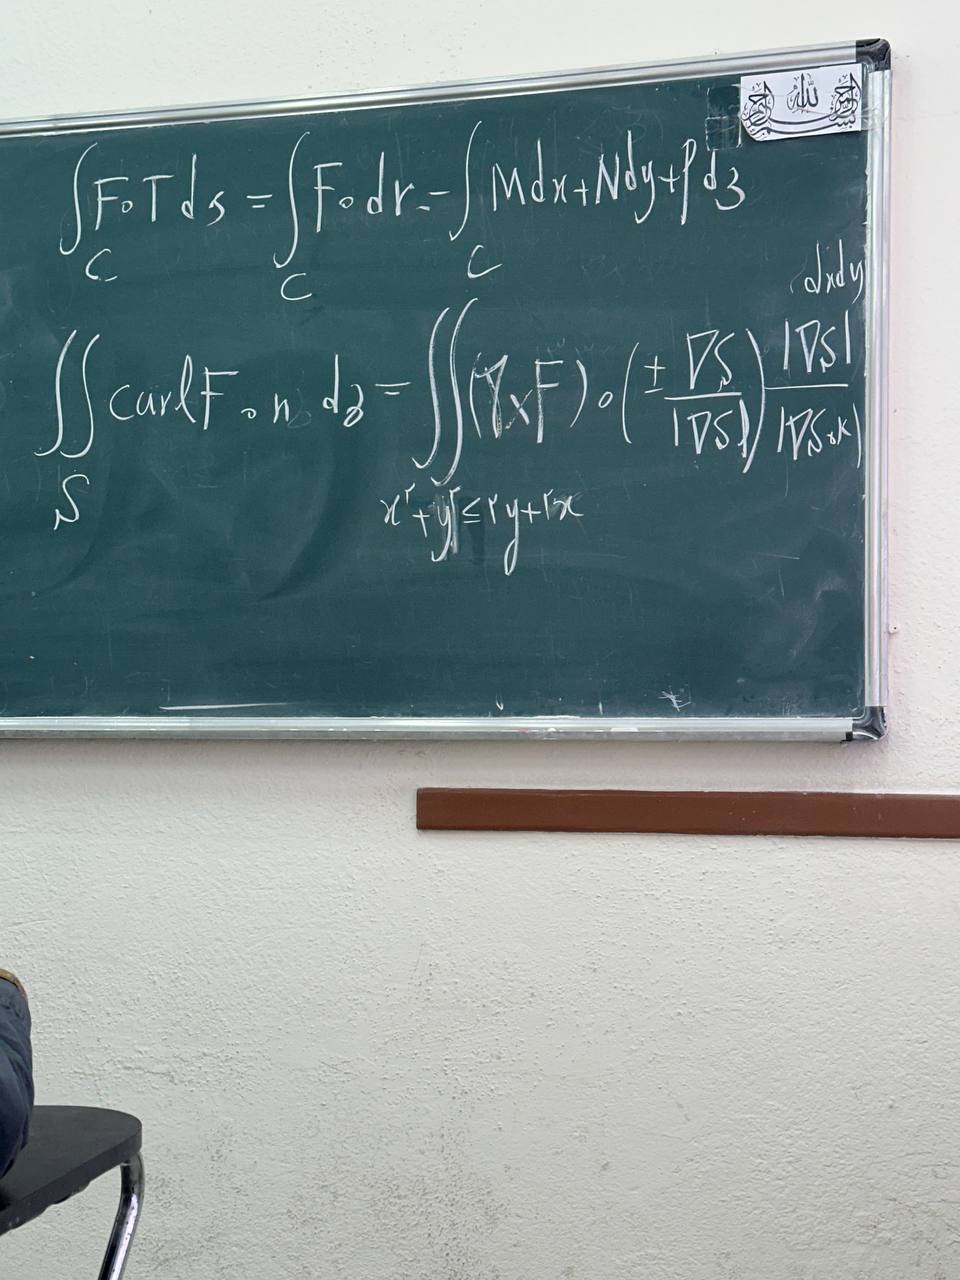 بسم الله الرحمن الرحیم
∫_C F∘T ds = ∫_C F∘dr = ∫_C Mdx+Ndy+Pdz
∬_S curlF∘n dz = ∬_{x²+y²≤۲y+۲x} (∇×F)∘(± ∇S/|∇S|) |∇S|/|∇S∘k| dxdy